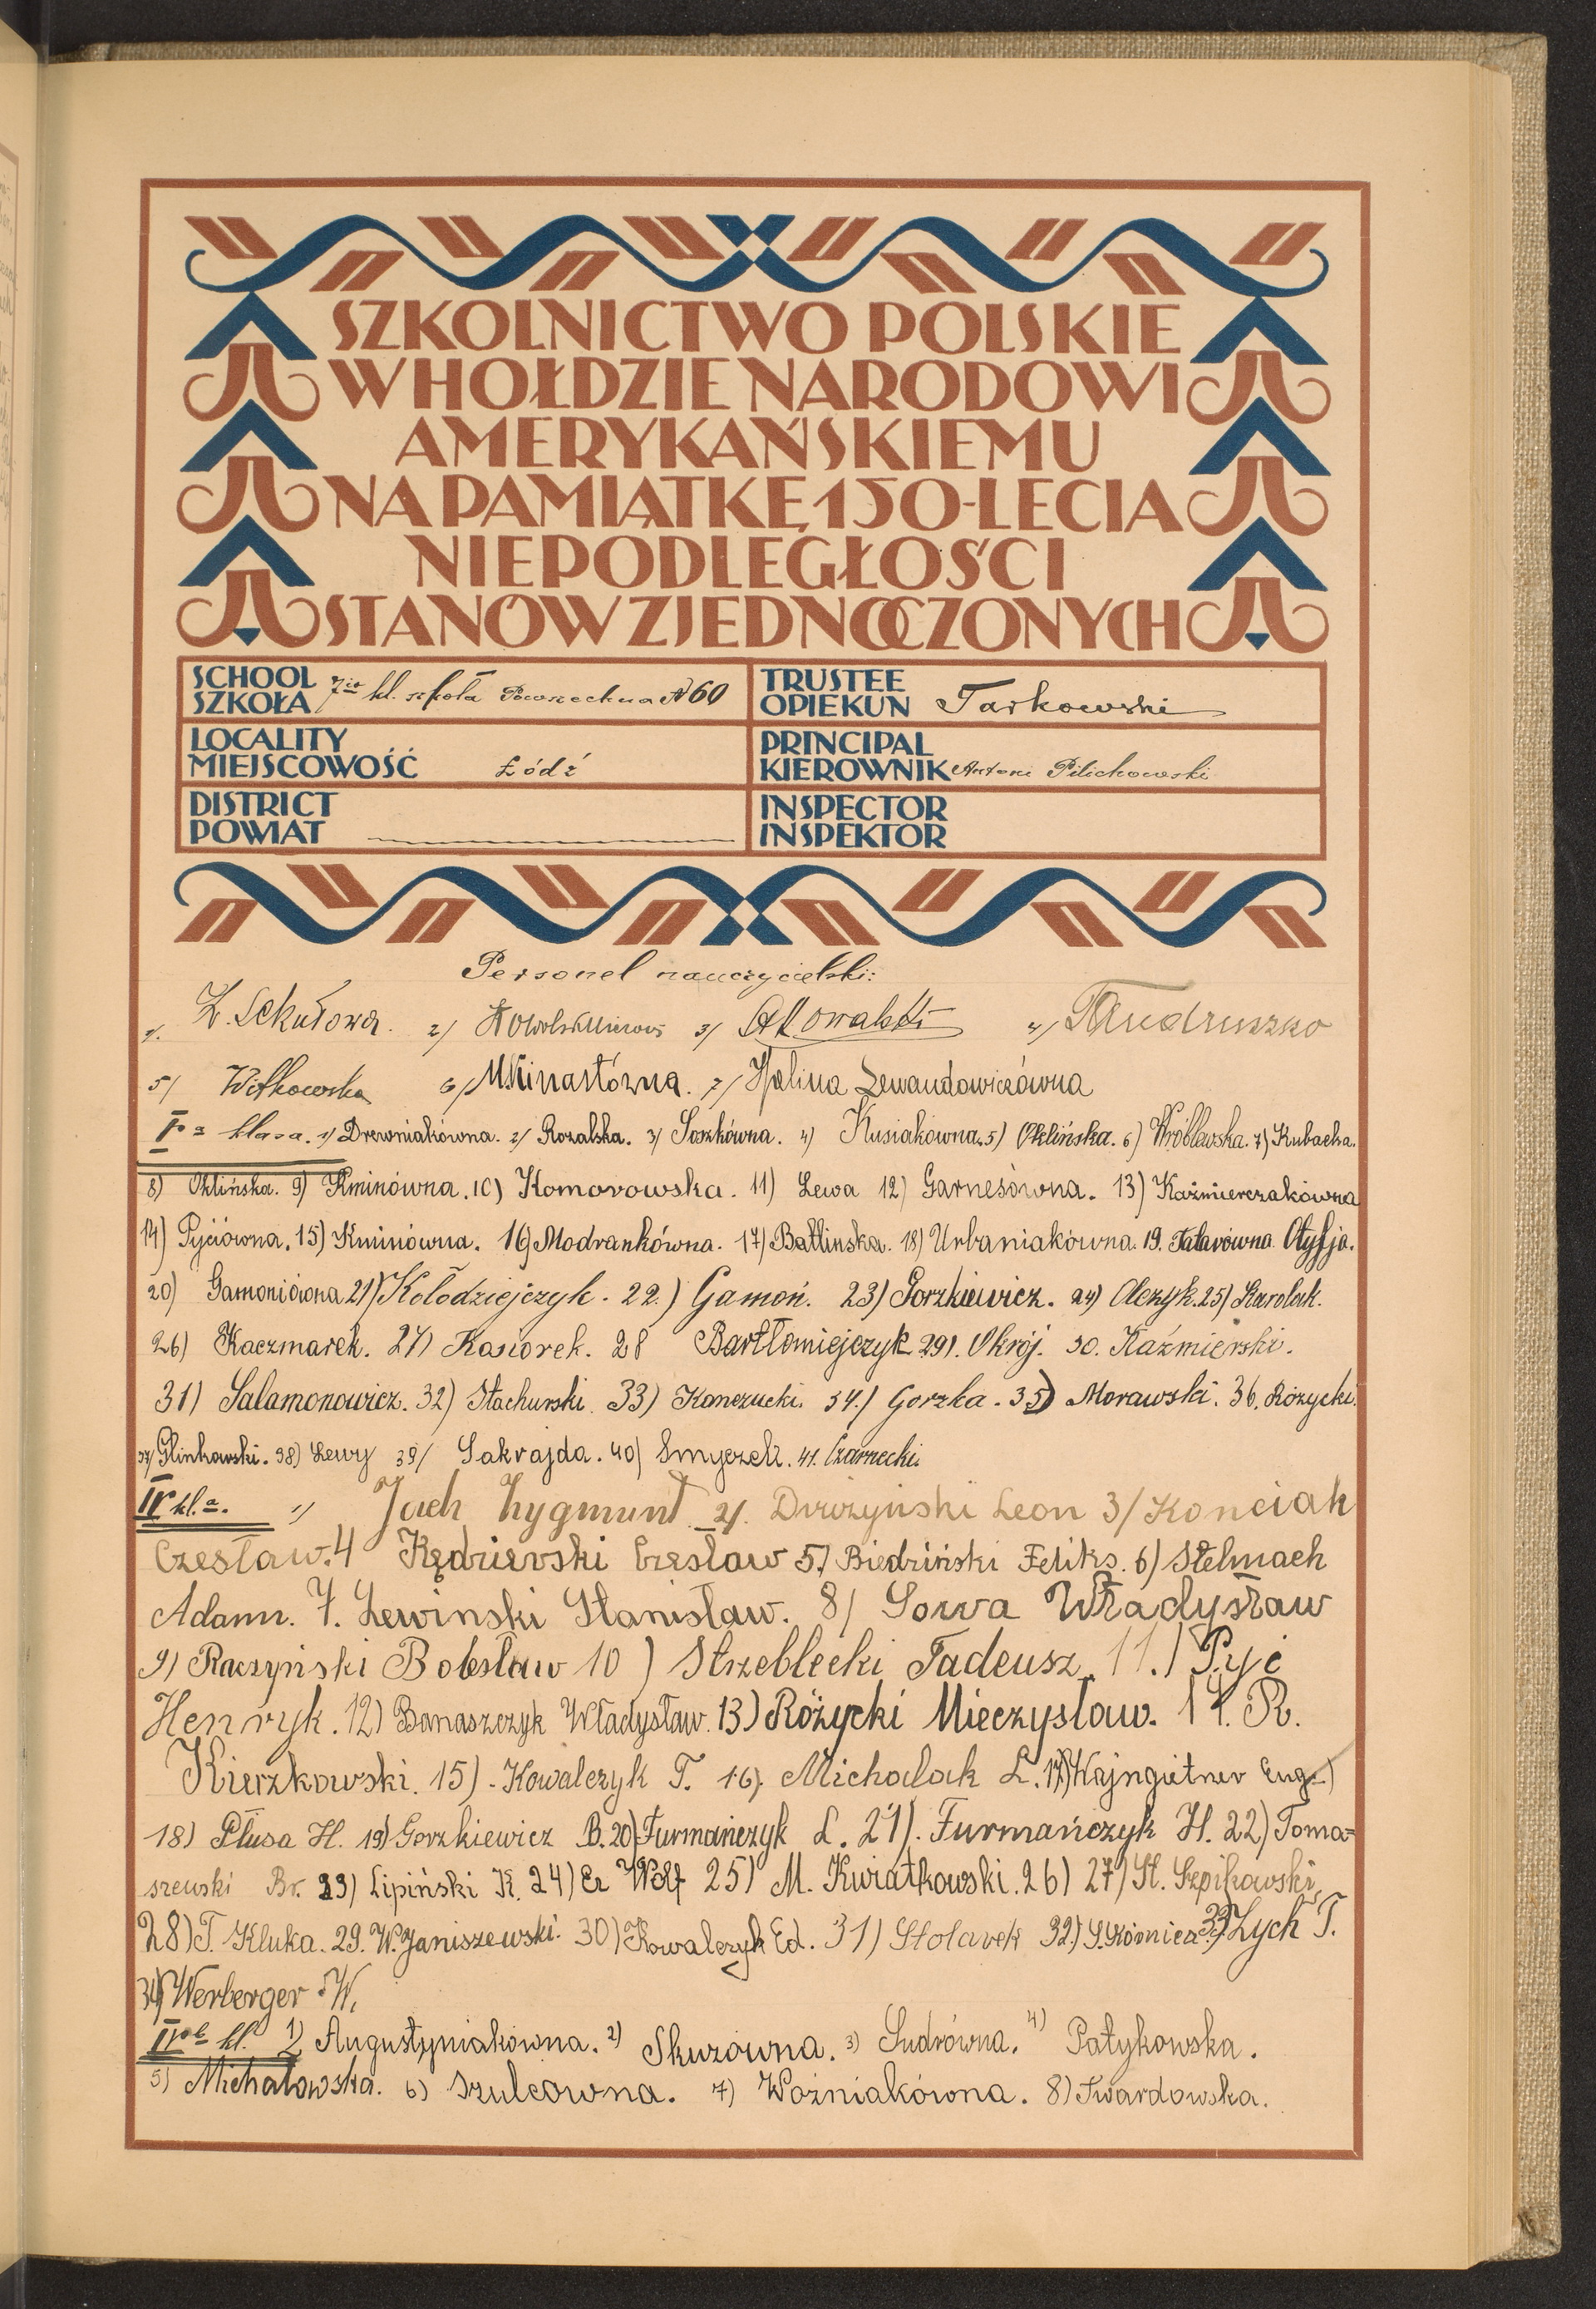 SZKOLNICTWO POLSKIE
W HOŁDZIE NARODOWI
AMERYKAŃSKIEMU
NA PAMIĄTKĘ 150-LECIA
NIEPODLEGŁOŚCI
STANÓW ZJEDNOCZONYCH
SCHOOL
SZKOŁA 7io kl. szkoła Powszechna № 60
TRUSTEE
OPIEKUN Tarkowski
LOCALITY
MIEJSCOWOŚĆ Łódź
PRINCIPAL
KIEROWNIK Antoni Pilichowski
DISTRICT
POWIAT
INSPECTOR
INSPEKTOR
Personel nauczycielski:
1/. Z. Sekułowa. 2/ 3/ Kowalski 4/
5/ Witkowska 6/ M. Kinastówna. 7/ Halina Lewandowiczówna
klasa. 1) Drewniakówna. 2) Rozalska. 3) Soszkówna. 4) Kusiakówna. 5) Oklińska. 6) Wróblewska. 7) Kubacka.
8) Oklińska. 9) Kminówna. 10) Komorowska. 11) Lewa 12) Garnesówna. 13) Kaźmierczakówna
14) Pyciówna. 15) Kminówna. 16) Modrankówna. 17) Batlinska. 18) Urbaniakówna. 19. Tatarówna Otylja.
20) Gamoniówna 21) Kołodziejczyk. 22.) Gamoń. 23) Gorzkiewicz. 24) Olczyk. 25) Karolak.
26) Kaczmarek. 27) Kaniorek. 28 Bartłomiejczyk 29). Okrój. 30. Kaźmierski.
31) Salamonowicz. 32) Stachurski. 33) Konczucki. 34.) Gorzka. 35) Morawski. 36. Różycki.
37) Glinkowski. 38) Lewy 39/ Sakrajda. 40) Smyczek. 41. Czarnecki.
IV kl. a. 1) Jach Zygmunt 2/. Durzyński Leon 3/ Konciak
Czesław. 4 Kędzierski Czesław 5.) Biedziński Feliks. 6) Stelmach
Adam. 7. Lewinski Stanisław. 8/ Sowa Władysław
9) Raczyński Bolesław 10) Strzeblecki Tadeusz. 11.) Pyć
Henryk. 12) Banaszczyk Władysław. 13) Różycki Mieczysław. 14. R.
Kierzkowski. 15). Kowalczyk T. 16). Michalak L. 17) Kajngietner Eug.
18) Płusa H. 19) Gorzkiewicz B. 20) Furmańczyk L. 21). Furmańczyk H. 22) Toma-
szewski Br. 23) Lipiński K. 24) Er Wolf 25) M. Kwiatkowski. 26) 27) St. Szpikowski,
28) T. Kluka. 29. W. Janiszewski. 30) Kowalczyk Ed. 31) Stolarek 32) S. 33) Zych T.
34) Werberger W.
IV b kl. 1) Augustyniakówna. 2) Skuzówna. 3) Sudrówna. 4) Patykowska.
5) Michałowska. 6) Szulcówna. 7) Woźniakówna. 8) Twardowska.